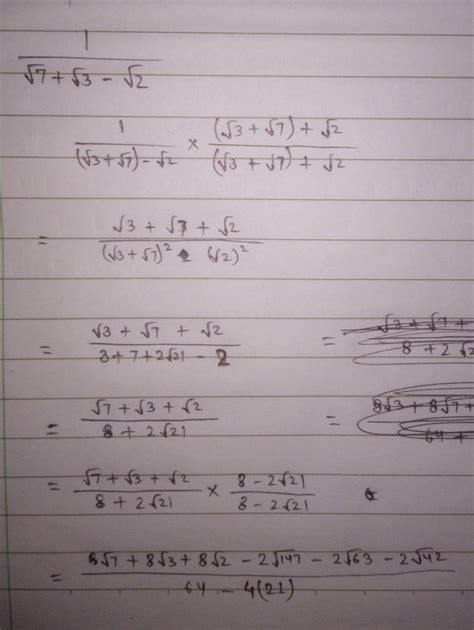 1
√7 + √3 - √2
1 / (√3+√7) - √2 × (√3 + √7) + √2 / (√3 + √7) + √2
= √3 + √7 + √2 / (√3 + √7)² - (√2)²
= √3 + √7 + √2 / 3 + 7 + 2√21 - 2 =
= √7 + √3 + √2 / 8 + 2√21 =
= √7 + √3 + √2 / 8 + 2√21 × 8 - 2√21 / 8 - 2√21
= 8√7 + 8√3 + 8√2 - 2√147 - 2√63 - 2√42 / 64 - 4(21)